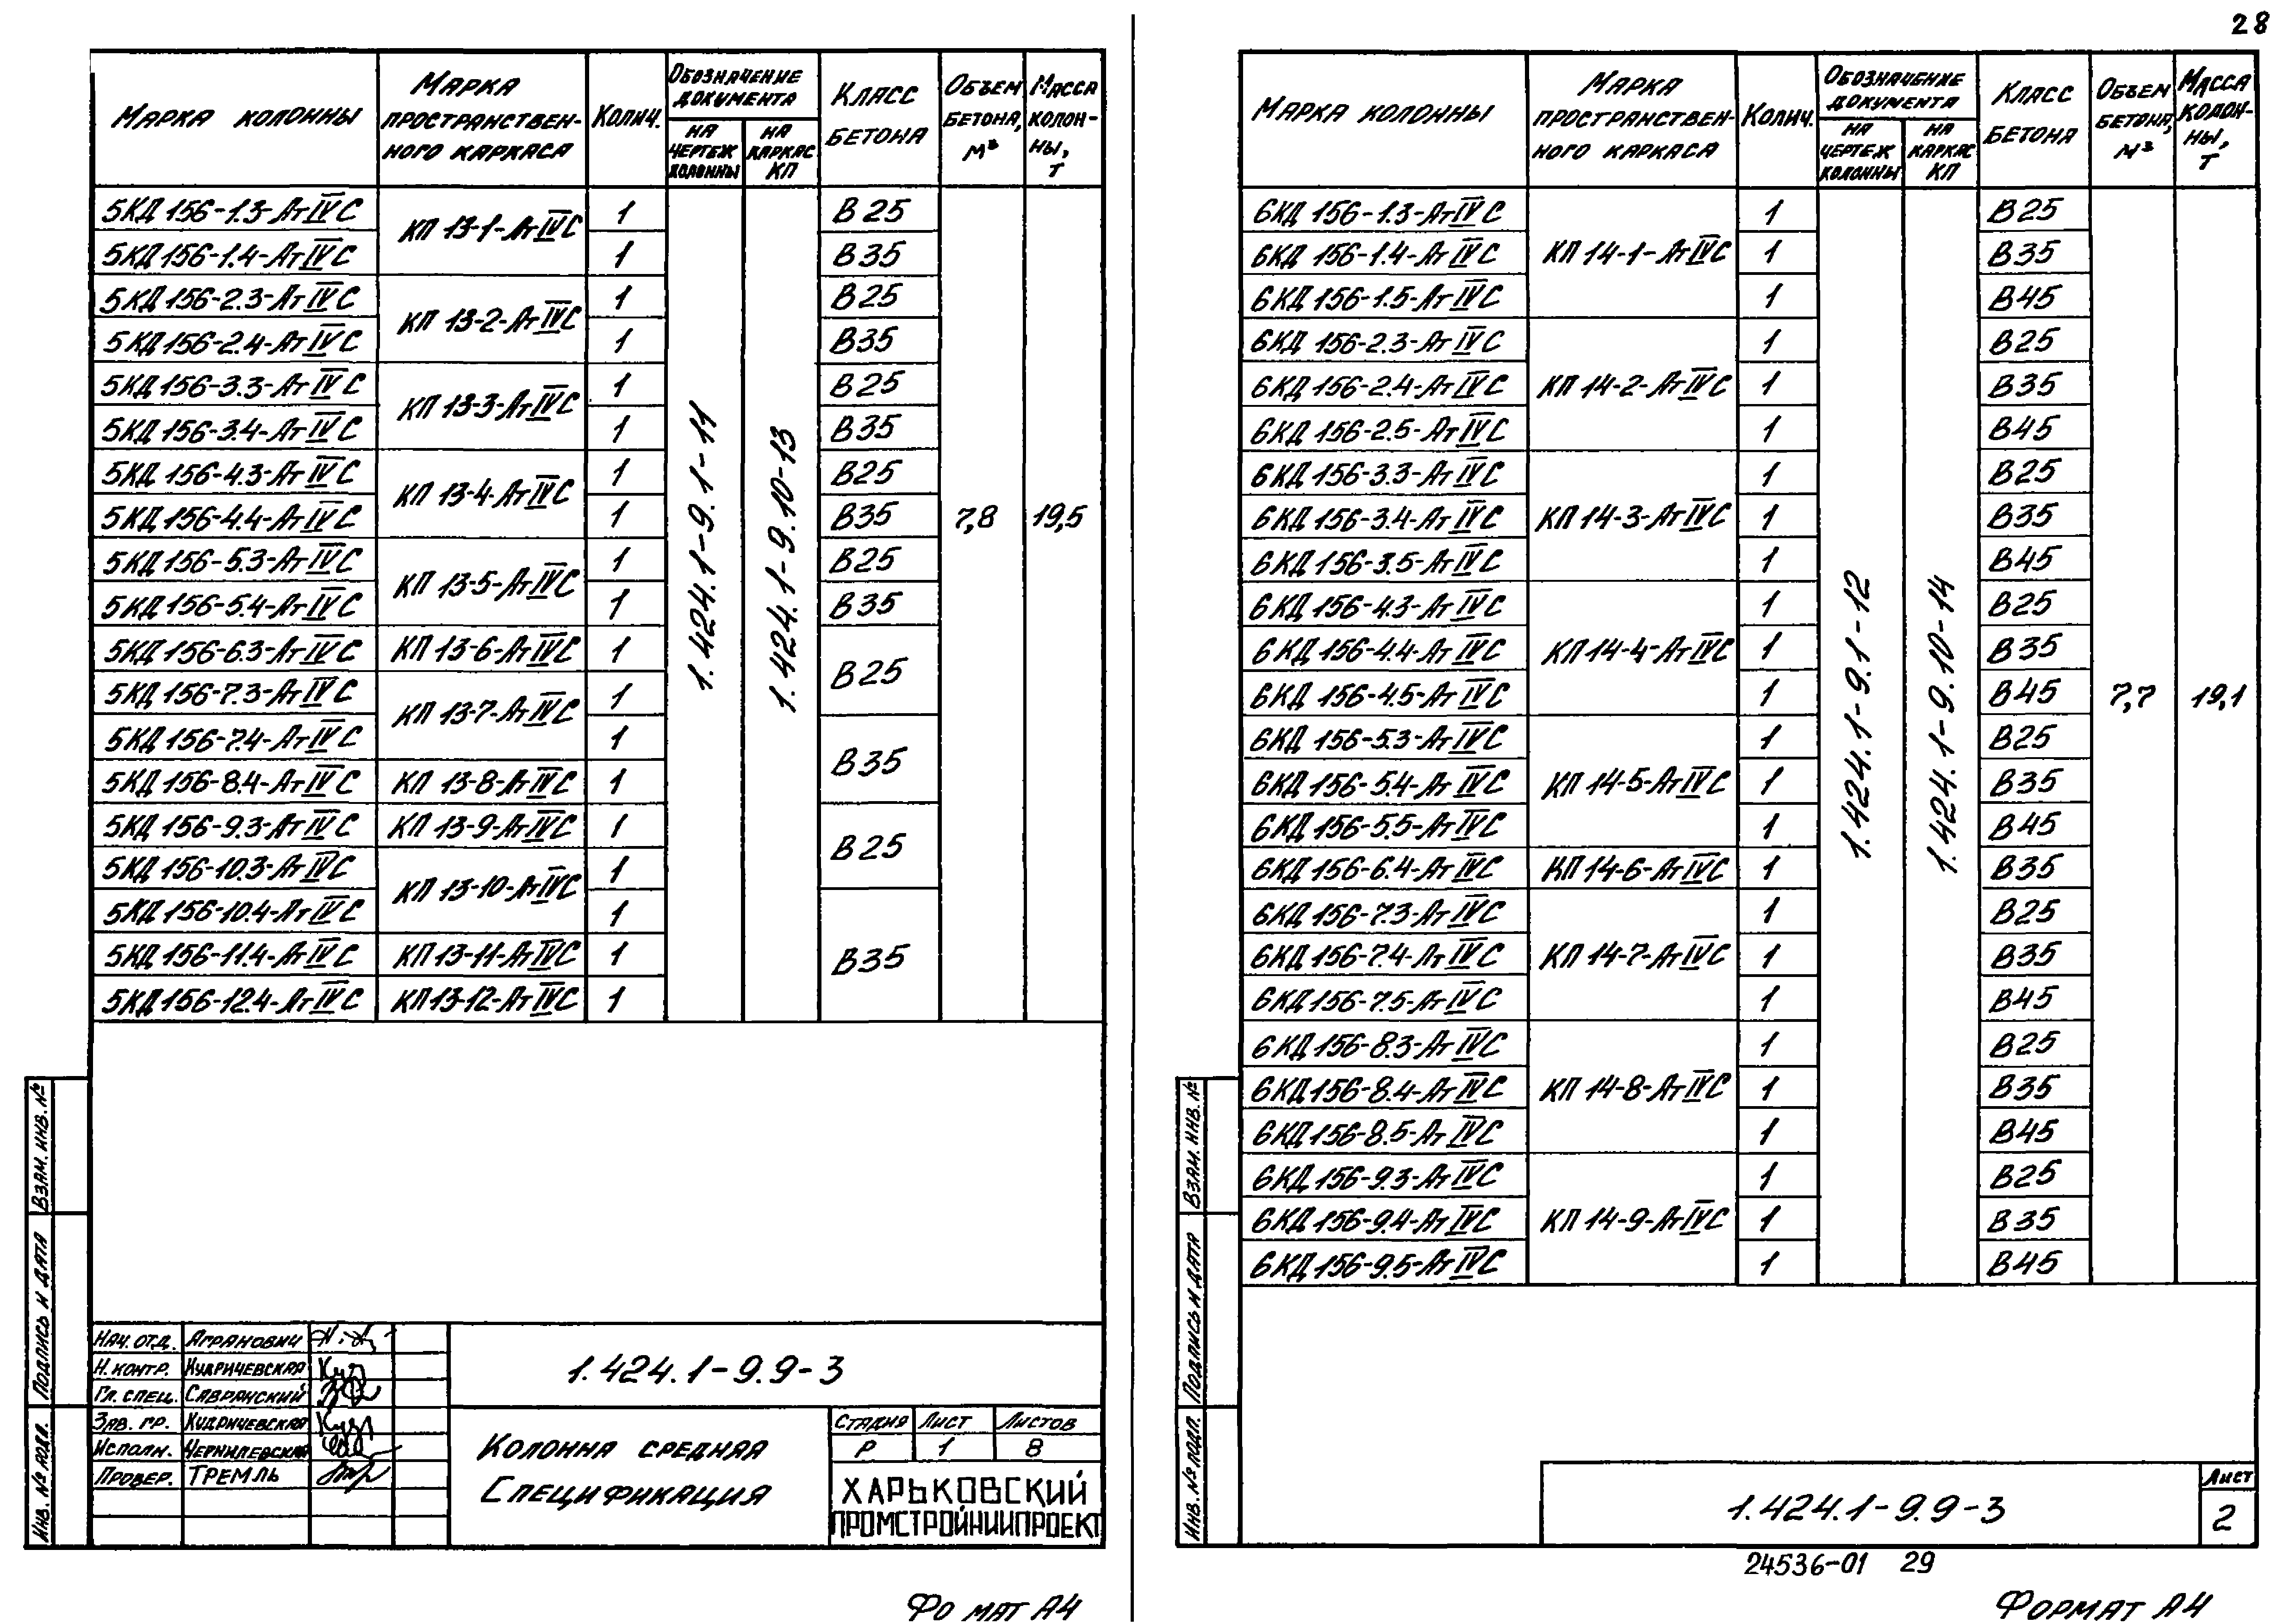 28
Марка колонны | Марка пространствен-ного каркаса | Колич. | Обозначение документа на чертеж колонны | Обозначение документа на каркас КП | Класс бетона | Объем бетона, м³ | Масса колон-ны, т
5КД 156-1.3-АтIVС | КП 13-1-АтIVС | 1 | 1.424.1-9.1-11 | 1.424.1-9.10-13 | В25 | 7,8 | 19,5
5КД 156-1.4-АтIVС | 1 | В35
5КД 156-2.3-АтIVС | КП 13-2-АтIVС | 1 | В25
5КД 156-2.4-АтIVС | 1 | В35
5КД 156-3.3-АтIVС | КП 13-3-АтIVС | 1 | В25
5КД 156-3.4-АтIVС | 1 | В35
5КД 156-4.3-АтIVС | КП 13-4-АтIVС | 1 | В25
5КД 156-4.4-АтIVС | 1 | В35
5КД 156-5.3-АтIVС | КП 13-5-АтIVС | 1 | В25
5КД 156-5.4-АтIVС | 1 | В35
5КД 156-6.3-АтIVС | КП 13-6-АтIVС | 1 | В25
5КД 156-7.3-АтIVС | КП 13-7-АтIVС | 1
5КД 156-7.4-АтIVС | 1 | В35
5КД 156-8.4-АтIVС | КП 13-8-АтIVС | 1
5КД 156-9.3-АтIVС | КП 13-9-АтIVС | 1 | В25
5КД 156-10.3-АтIVС | КП 13-10-АтIVС | 1
5КД 156-10.4-АтIVС | 1 | В35
5КД 156-11.4-АтIVС | КП 13-11-АтIVС | 1
5КД 156-12.4-АтIVС | КП 13-12-АтIVС | 1
Взам. инв. №
Подпись и дата
Инв. № подл.
Нач. отд. Агранович
Н. контр. Кудричевская
Гл. спец. Савранский
Зав. гр. Кудричевская
Исполн. Чернилевская
Провер. Тремль
1.424.1-9.9-3
Колонна средняя
Спецификация
Стадия Лист Листов
Р 1 8
ХАРЬКОВСКИЙ
ПРОМСТРОЙНИИПРОЕКТ
Фо мат А4
Марка колонны | Марка пространствен-ного каркаса | Колич. | Обозначение документа на чертеж колонны | Обозначение документа на каркас КП | Класс бетона | Объем бетона, м³ | Масса колон-ны, т
6КД 156-1.3-АтIVС | КП 14-1-АтIVС | 1 | 1.424.1-9.1-12 | 1.424.1-9.10-14 | В25 | 7,7 | 19,1
6КД 156-1.4-АтIVС | 1 | В35
6КД 156-1.5-АтIVС | 1 | В45
6КД 156-2.3-АтIVС | КП 14-2-АтIVС | 1 | В25
6КД 156-2.4-АтIVС | 1 | В35
6КД 156-2.5-АтIVС | 1 | В45
6КД 156-3.3-АтIVС | КП 14-3-АтIVС | 1 | В25
6КД 156-3.4-АтIVС | 1 | В35
6КД 156-3.5-АтIVС | 1 | В45
6КД 156-4.3-АтIVС | КП 14-4-АтIVС | 1 | В25
6КД 156-4.4-АтIVС | 1 | В35
6КД 156-4.5-АтIVС | 1 | В45
6КД 156-5.3-АтIVС | КП 14-5-АтIVС | 1 | В25
6КД 156-5.4-АтIVС | 1 | В35
6КД 156-5.5-АтIVС | 1 | В45
6КД 156-6.4-АтIVС | КП 14-6-АтIVС | 1 | В35
6КД 156-7.3-АтIVС | КП 14-7-АтIVС | 1 | В25
6КД 156-7.4-АтIVС | 1 | В35
6КД 156-7.5-АтIVС | 1 | В45
6КД 156-8.3-АтIVС | КП 14-8-АтIVС | 1 | В25
6КД 156-8.4-АтIVС | 1 | В35
6КД 156-8.5-АтIVС | 1 | В45
6КД 156-9.3-АтIVС | КП 14-9-АтIVС | 1 | В25
6КД 156-9.4-АтIVС | 1 | В35
6КД 156-9.5-АтIVС | 1 | В45
Взам. инв. №
Подпись и дата
Инв. № подл.
1.424.1-9.9-3
Лист
2
24536-01 29
Формат А4